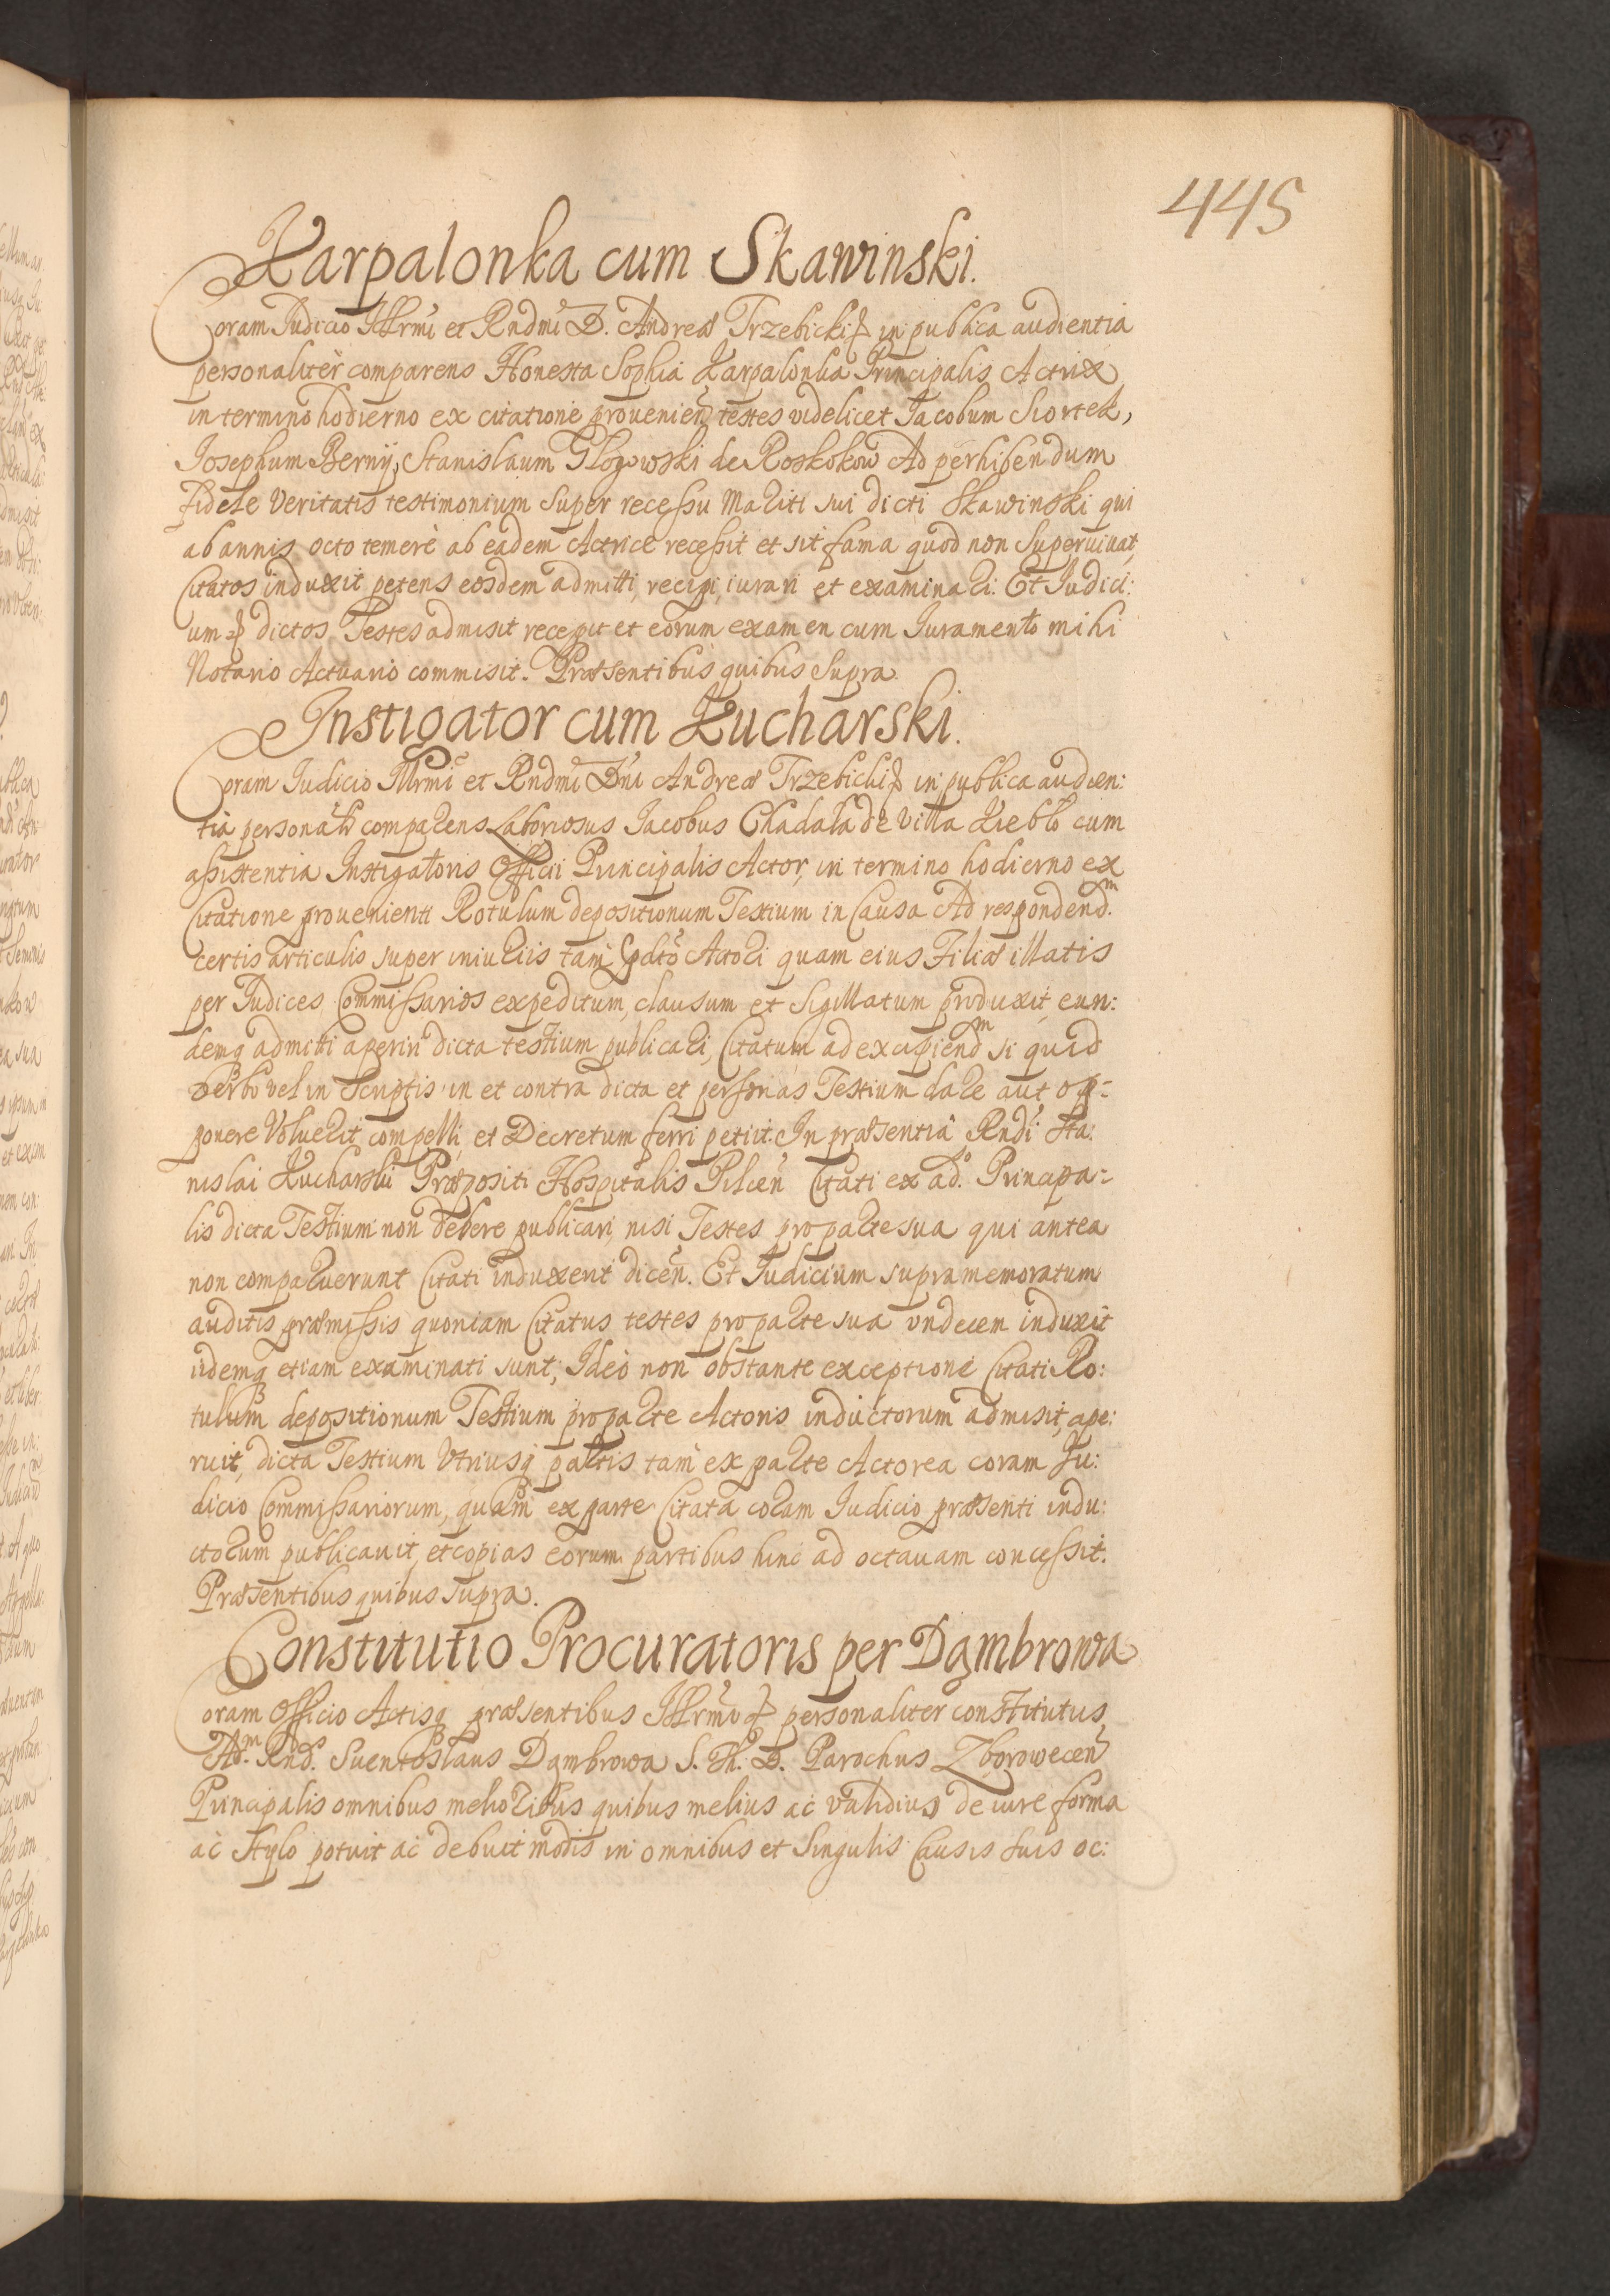 445
Karpalonka cum Skawinski.
Coram Judicio Illrmi et Rndmi D. Andreæ Trzebicki in publica audientia
personaliter comparens Honesta Sophia Karpalonka Principalis Actrix
in termino hodierno ex citatione provenien testes videlicet Jacobum Siortek,
Josephum Berny, Stanislaum Glogowski de Roskokow Ad perhibendum
fidele Veritatis testimonium super recessu Mariti sui dicti Skawinski qui
ab annis octo temere ab eadem Actrice recessit et sit fama quod non Superuiuat,
Citatos induxit petens eosdem admitti, recipi, iurari et examinari. Et Judici:
um dictos Testes admisit recepit et eorum examen cum Juramento mihi
Notario Actuario commisit. Præsentibus quibus Supra.
Instigator cum Kucharski.
Coram Judicio Illrmi et Rndmi Dni Andreæ Trzebicki in publica audien:
tia personalr comparens Laboriosus Jacobus Chadala de Villa Kieblo cum
assistentia Instigatoris Officii Principalis Actor, in termino hodierno ex
Citatione prouenienti Rotulum depositionum Testium in Causa Ad respondend.m
certis articulis super iniuriis tam pdto Actori quam eius Filiæ illatis
per Judices Commissarios expeditum, clausum et Sigillatum produxit, eun:
demq admitti aperiri dicta testium publicari, Citatum ad excipiendm si quid
verbo vel in Scriptis in et contra dicta et personas Testium dare aut op=
ponere Voluerit compelli, et Decretum ferri petiit. In præsentia Rndi Sta:
nislai Kucharski Præpositi Hospitalis Pilcen Citati ex ad.o Principa=
lis dicta Testium non debere publicari, nisi Testes pro parte sua qui antea
non comparuerunt Citati induxerit dicen. Et Judicium supramemoratum
auditis præmissis quoniam Citatus testes pro parte sua vndecem induxit
iidemq etiam examinati sunt, Ideo non obstante exceptione Citati Ro:
tulum depositionum Testium pro parte Actoris inductorum admisit, ape:
ruit, dicta Testium Vtriusq partis tam ex parte Actorea coram Ju:
dicio Commissariorum, quam ex parte Citata coram Judicio præsenti indu:
ctorum publicauit, et copias eorum partibus hinc ad octauam concessit.
Præsentibus quibus supra.
Constitutio Procuratoris per Dąmbrowa
Coram Officio Actisq præsentibus Illrmi personaliter constitutus
Ad.m Rnd.s Suentoslaus Dąmbrowa S. Th. D. Parochus Zborowecen
Principalis omnibus melioribus quibus melius ac validius de iure forma
ac stylo potuit ac debuit modis in omnibus et Singulis Causis suis oc: